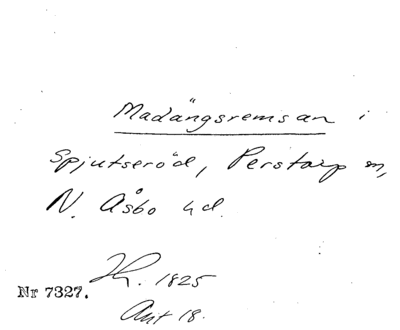 Madängsremsan i
Spjutseröd, Perstorp sn,
N. Åsbo hd.
1825
Nr 7327.
Akt 18.